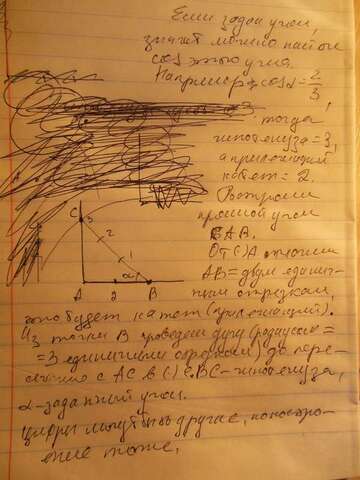 Если задан угол,
значит можно найти
cos этого угла.
Например, cosα = 2/3,
тогда
гипотенуза = 3,
а прилежащий
катет = 2.
Построим
прямой угол
CAB.
От (·) A отложим
AB = двум единич-
ным отрезкам,
это будет катет (прилежащий).
Из точки B проведём дугу (радиусом =
= 3 единичным отрезкам) до пере-
сечения с AC в (·) C. BC – гипотенуза,
α – заданный угол.
Цифры могут быть другие, но построе-
ние тоже.
C 3
2
1
α
A 2 B